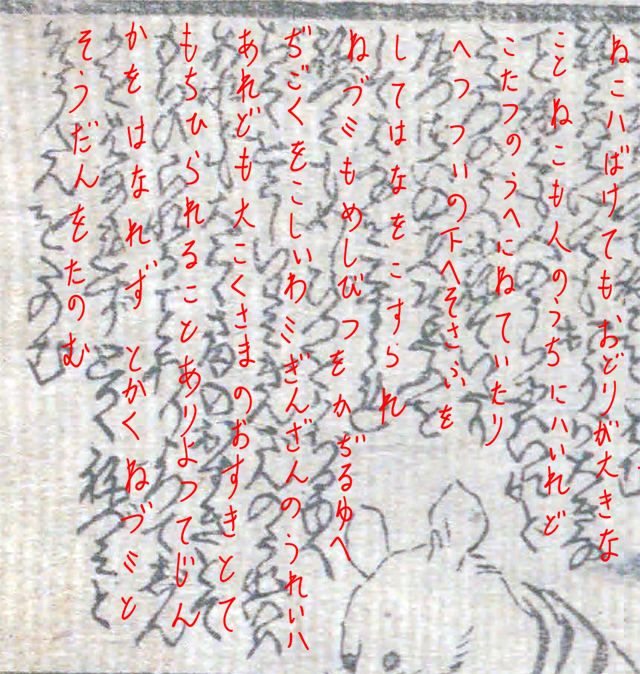 ねこハばけても おどりが大きな
こと ねこも人のうちにハいれど
こたつのうへにねていたり
へつついの下へそさういを
してはなをこすられ
ねづミもめしびつをかぢるゆへ
ぢごくをこしいわミぎんざんのうれいハ
あれども大こくさまのおすきとて
もちひられることありよつてじん
かをはなれず とかくねづミと
そうだんをたのむ